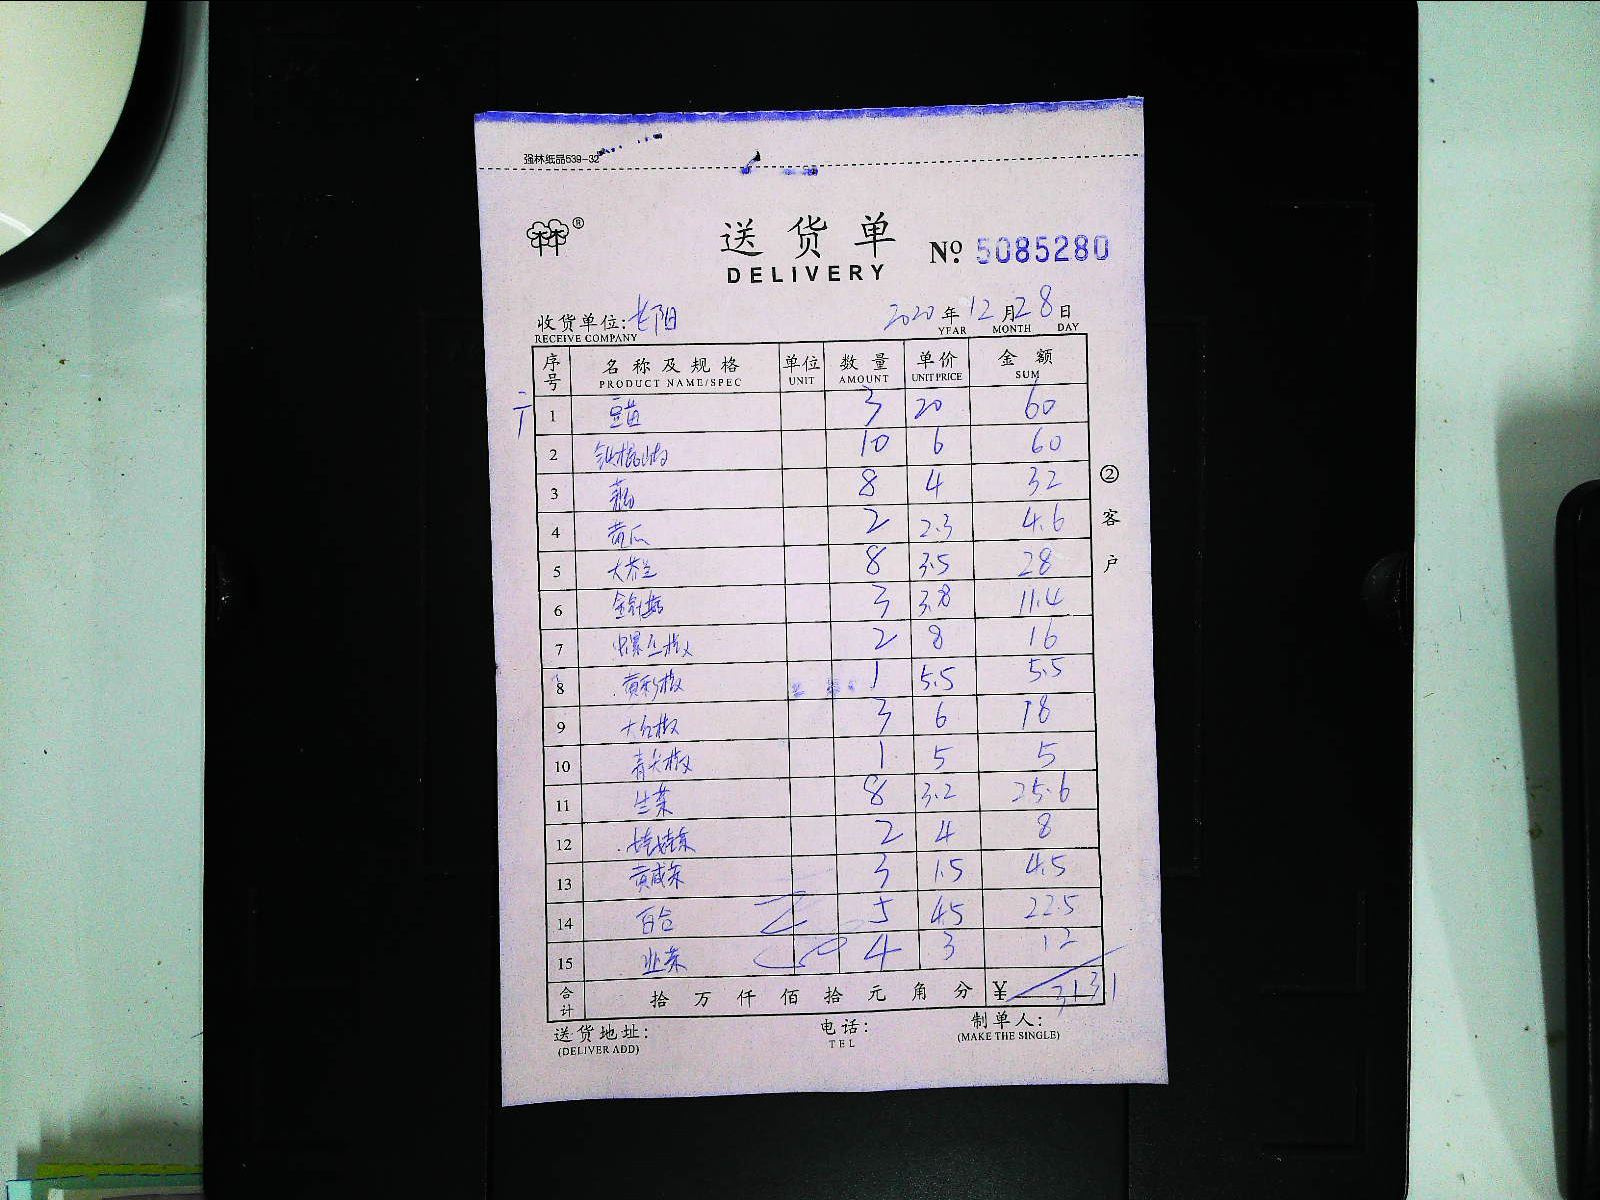 强林纸品539-32
林®
送货单
DELIVERY
№ 5085280
收货单位: 长阳 2020年12月28日
RECEIVE COMPANY YEAR MONTH DAY
序号 名称及规格 单位 数量 单价 金额
PRODUCT NAME/SPEC UNIT AMOUNT UNIT PRICE SUM
1 豆苗 3 20 60
2 铁棍山药 10 6 60
3 8 4 32
4 黄瓜 2 2.3 4.6
5 大芥兰 8 3.5 28
6 金针菇 3 3.8 11.4
7 螺丝椒 2 8 16
8 黄彩椒 1 5.5 5.5
9 大红椒 3 6 18
10 青尖椒 1 5 5
11 生菜 8 3.2 25.6
12 娃娃菜 2 4 8
13 黄咸菜 3 1.5 4.5
14 百合 5 4.5 22.5
15 韭菜 4 3 12
合计 拾万仟佰拾元角分 ¥ 313.1
②客户
送货地址: 电话: 制单人:
(DELIVER ADD) TEL (MAKE THE SINGLE)